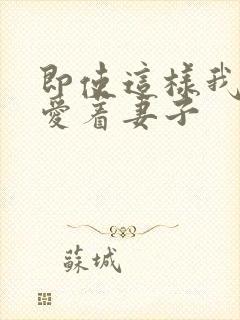 即使這樣我
愛着妻子
蘇城